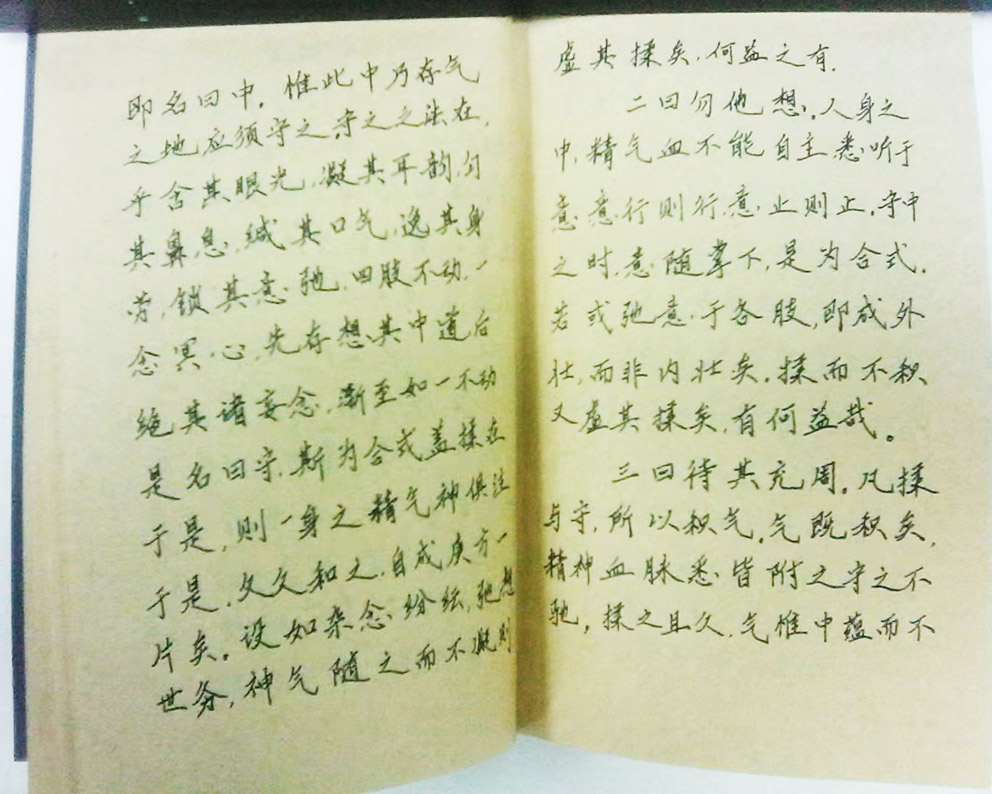 即名曰中，惟此中乃存气
之地应须守之，守之之法在，
乎含其眼光，凝其耳韵，匀
其鼻息，缄其口气，逸其身
劳，锁其意驰，四肢不动，一
念冥心，先存想其中道后
绝其诸妄念，渐至如一不动
是名曰守，斯为合式盖揉在
于是，则一身之精气神俱注
于是，久久和之，自成庚方一
片矣。设如杂念纷纭，驰想
世务，神气随之而不凝则
虚其揉矣，何益之有．
二曰勿他想，人身之
中，精气血不能自主悉听于
意，意行则行，意止则止，守中
之时，意随掌下，是为合式．
若或驰意于各肢，即成外
壮，而非内壮矣．揉而不积
又虚其揉矣，有何益哉。
三曰待其充周，凡揉
与守，所以积气，气既积矣，
精神血脉悉皆附之守之不
驰，揉之且久，气惟中蕴而不